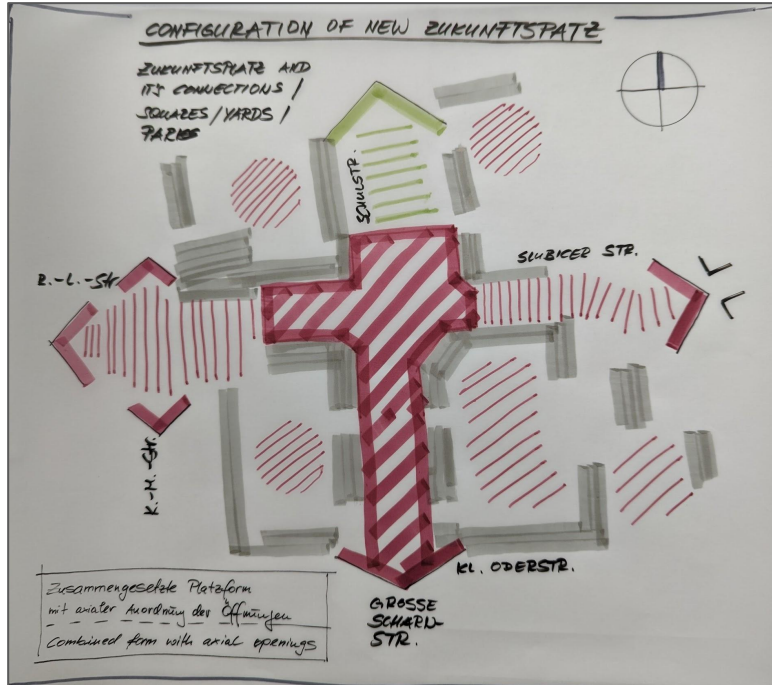 CONFIGURATION OF NEW ZUKUNFTSPATZ
ZUKUNFTSPLATZ AND
ITS CONNECTIONS /
SQUARES / YARDS /
PARKS
SCHULSTR.
SLUBICER STR.
R.-L.-Str.
K.-M.-Str.
KL. ODERSTR.
GROSSE
SCHARN-
STR.
Zusammengesetzte Platzform
mit axialer Anordnung der Öffnungen
Combined form with axial openings